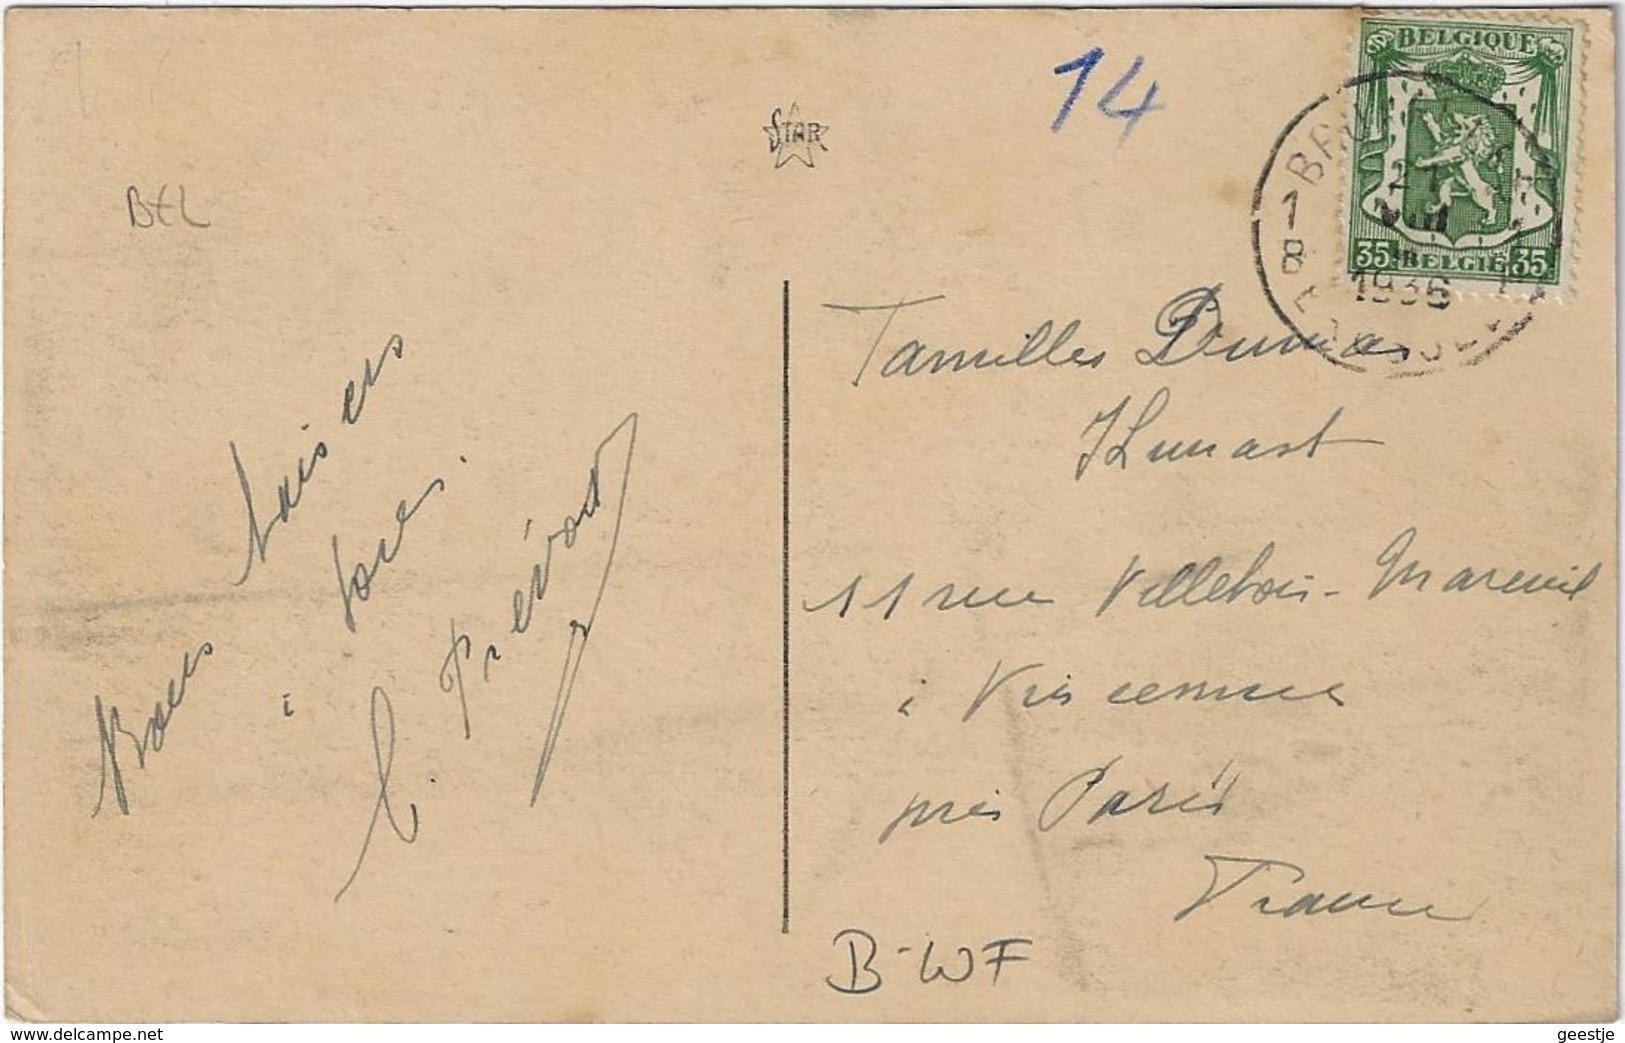 14
STAR
BEL
BELGIQUE
35 BELGIE 35
1936
1 B
Bons baisers
à tous.
C. Prévost
Familles Dumas
Hunast
11 rue Villebois-Mareuil
à Vincennes
près Paris
France
B-WF
www.delcampe.net
geestje